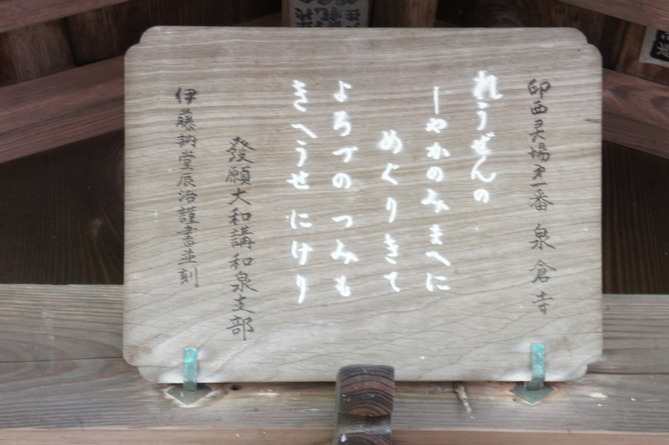 印西灵場第一番 泉倉寺
れうぜんの
しやかのみまへに
めぐりきて
よろづのつみも
きへうせにけり
發願大和講和泉支部
伊藤鞆堂辰治謹書並刻